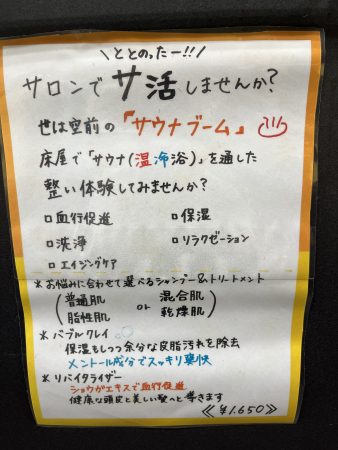 \ととのったー!!/
サロンでサ活しませんか?
世は空前の「サウナブーム」♨
床屋で「サウナ(温冷浴)」を通した
整い体験してみませんか?
□血行促進 □保湿
□洗浄 □リラクゼーション
□エイジングケア
*お悩みに合わせて選べるシャンプー&トリートメント
(普通肌 脂性肌) or (混合肌 乾燥肌)
*バブルクレイ
保湿もしつつ余分な皮脂汚れを除去
メントール成分でスッキリ爽快
*リバイタライザー
ショウガエキスで血行促進
健康な頭皮と美しい髪へと導きます
《¥1,650》